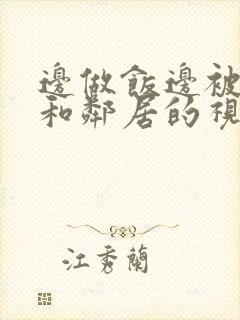 邊做飯邊被
和鄰居的視
江秀蘭